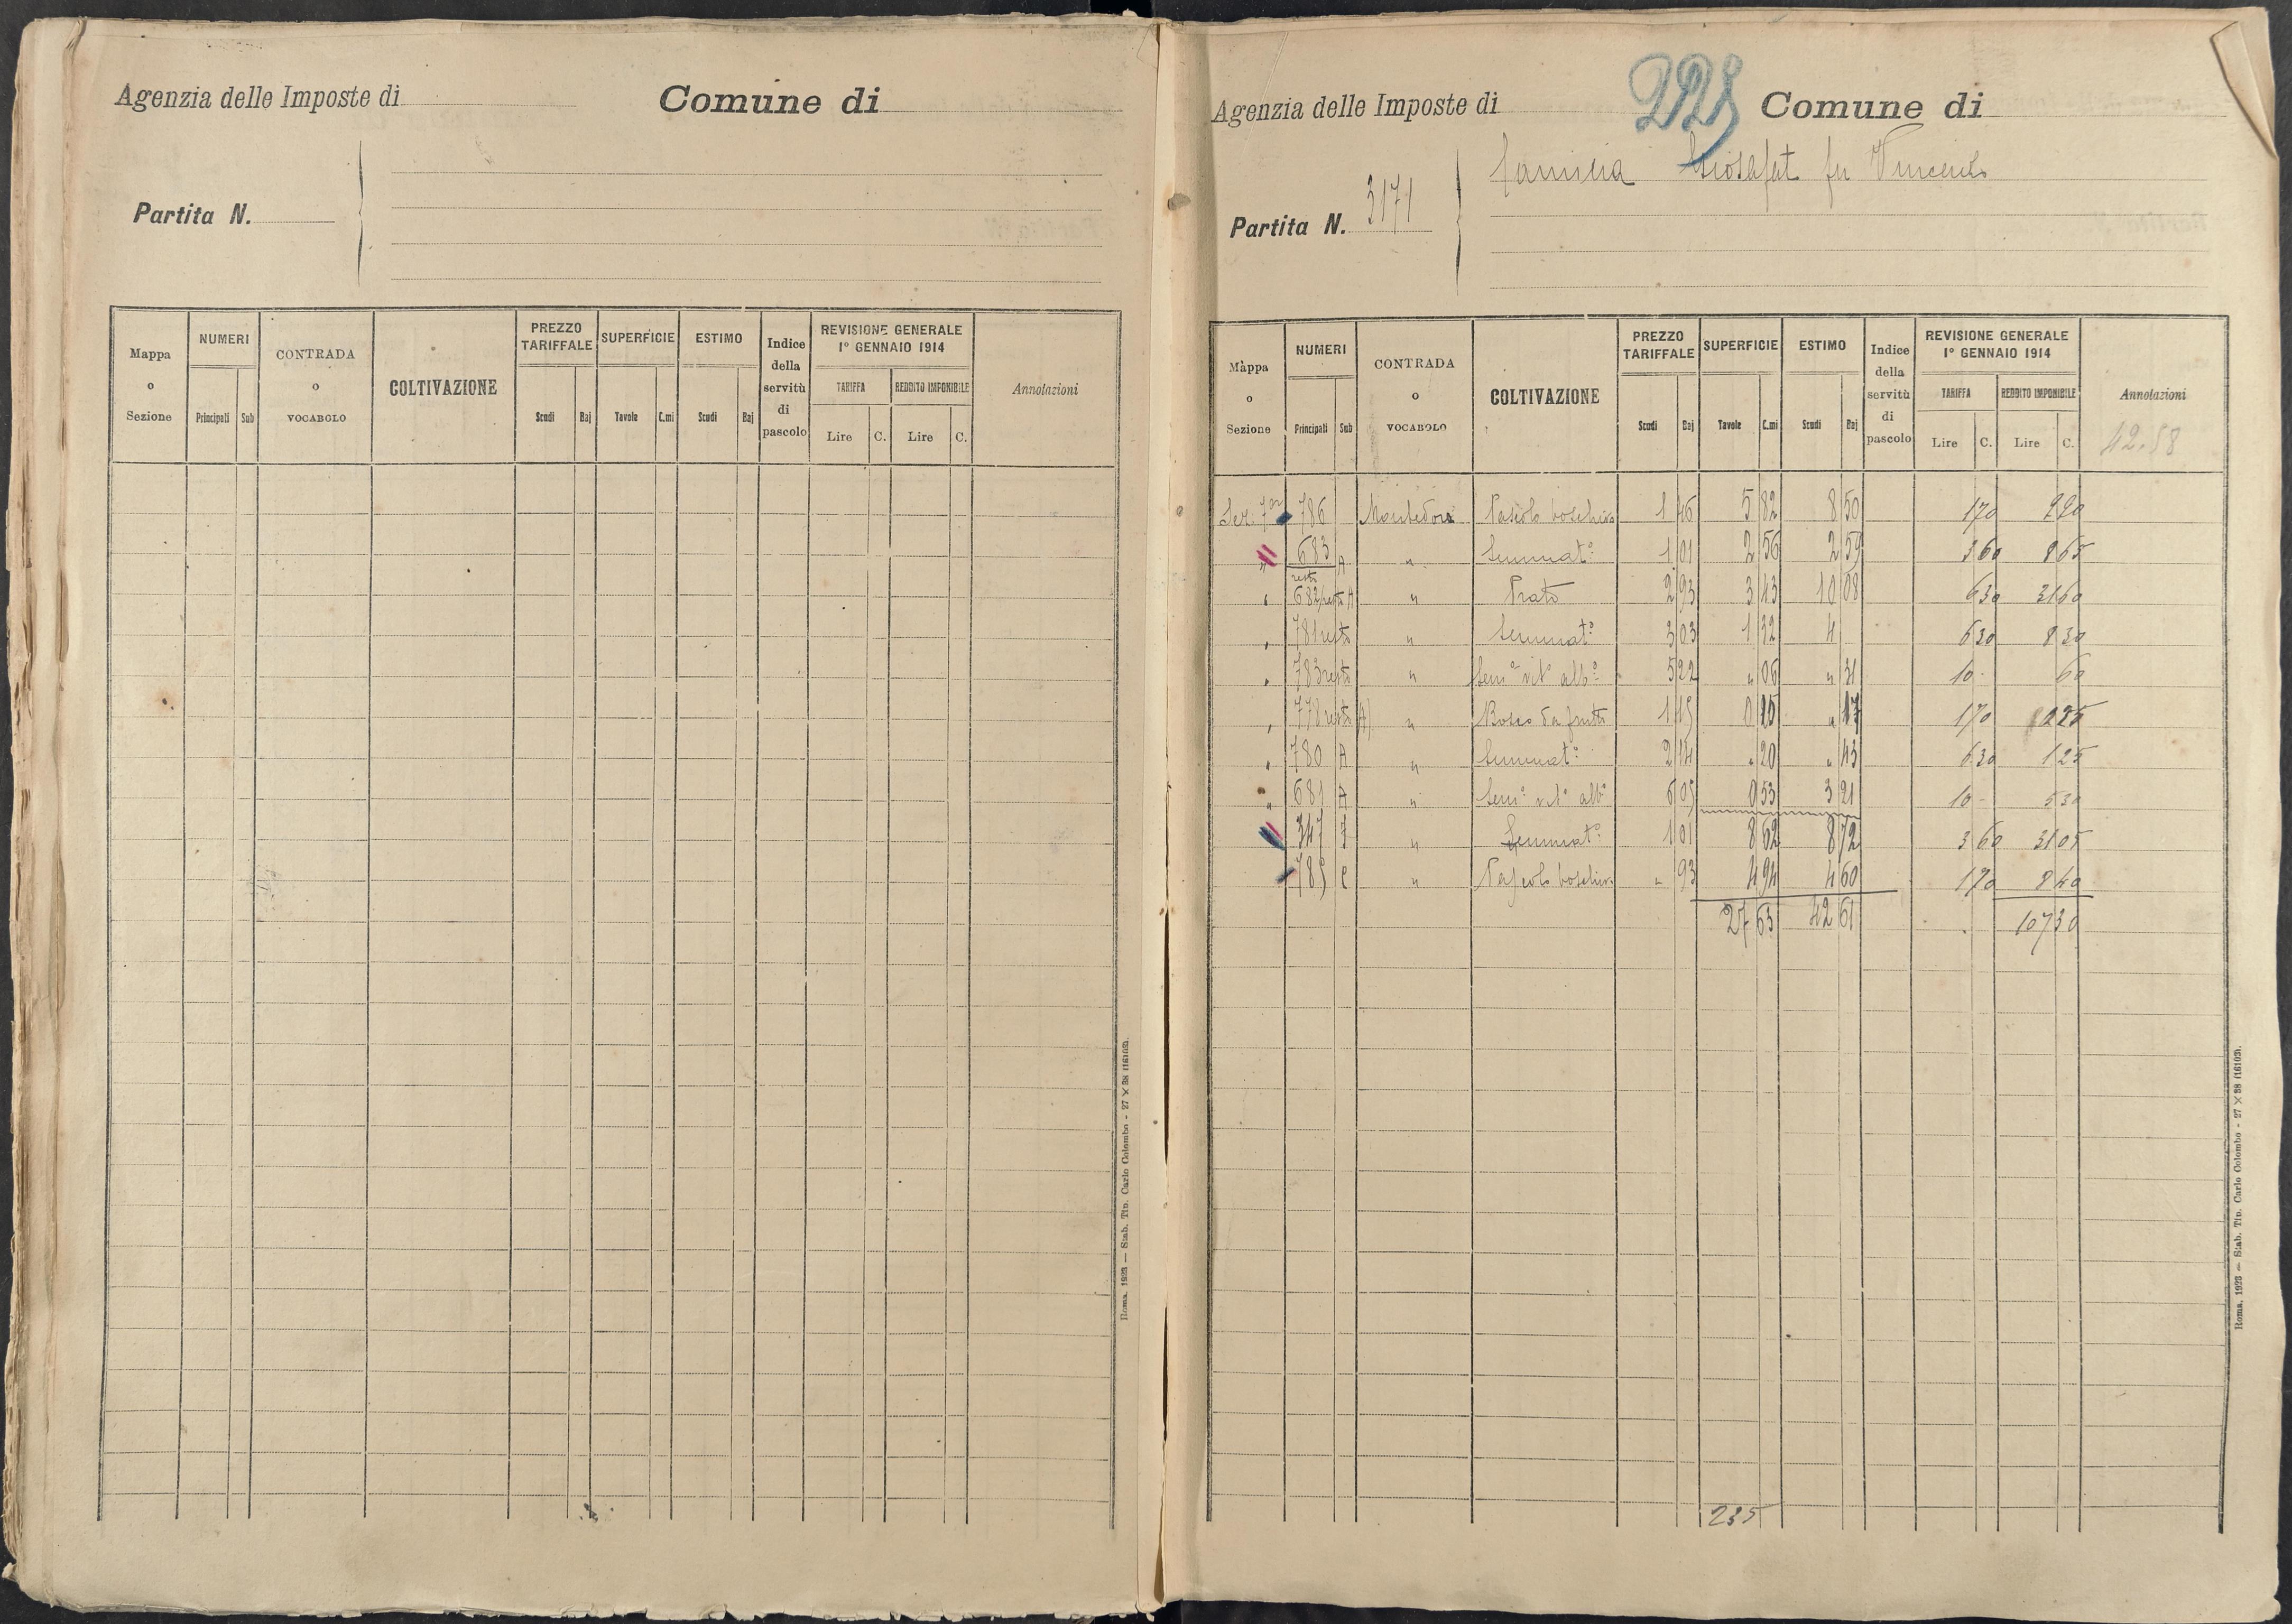 Agenzia delle Imposte di
Comune di
Partita N.
Mappa o Sezione
NUMERI
Principali Sub
CONTRADA o VOCABOLO
COLTIVAZIONE
PREZZO TARIFFALE
Scudi Baj
SUPERFICIE
Tavole C.mi
ESTIMO
Scudi Baj
Indice della servitù di pascolo
REVISIONE GENERALE 1° GENNAIO 1914
TARIFFA
Lire C.
REDDITO IMPONIBILE
Lire C.
Annotazioni
Roma, 1923 — Stab. Tip. Carlo Colombo - 27 × 38 (16103).
Agenzia delle Imposte di
Comune di
Partita N. 3171
fu Vincenzo
Mappa o Sezione
NUMERI
Principali Sub
CONTRADA o VOCABOLO
COLTIVAZIONE
PREZZO TARIFFALE
Scudi Baj
SUPERFICIE
Tavole C.mi
ESTIMO
Scudi Baj
Indice della servitù di pascolo
REVISIONE GENERALE 1° GENNAIO 1914
TARIFFA
Lire C.
REDDITO IMPONIBILE
Lire C.
Annotazioni
42.58
Sez. 7 786 Pascolo boschivo 1 46 5 82 8 50 1 70 9 90
" 683 resto A " Seminat° 1 01 2 56 2 59 3 60 8 65
" 682 resto A " Prato 2 93 3 43 10 08 6 30 21 60
" 781 resto " Seminat° 3 03 1 32 4 6 30 8 30
" 783 resto " Sem° vit° alb° 5 22 " 06 " 31 10 - 60
" 778 resto A " Bosco da frutto 1 15 0 15 " 17 1 70 25
" 780 A " Seminat° 2 14 " 20 " 43 6 30 1 25
" 681 A " Sem° vit° alb° 6 05 0 53 3 21 10 - 5 30
347 " Seminat° 1 01 8 62 8 72 3 60 31 05
785 C " Pascolo boschivo " 93 4 94 4 60 1 70 8 40
27 63 42 61 107 30
235
Roma, 1923 — Stab. Tip. Carlo Colombo - 27 × 38 (16103).